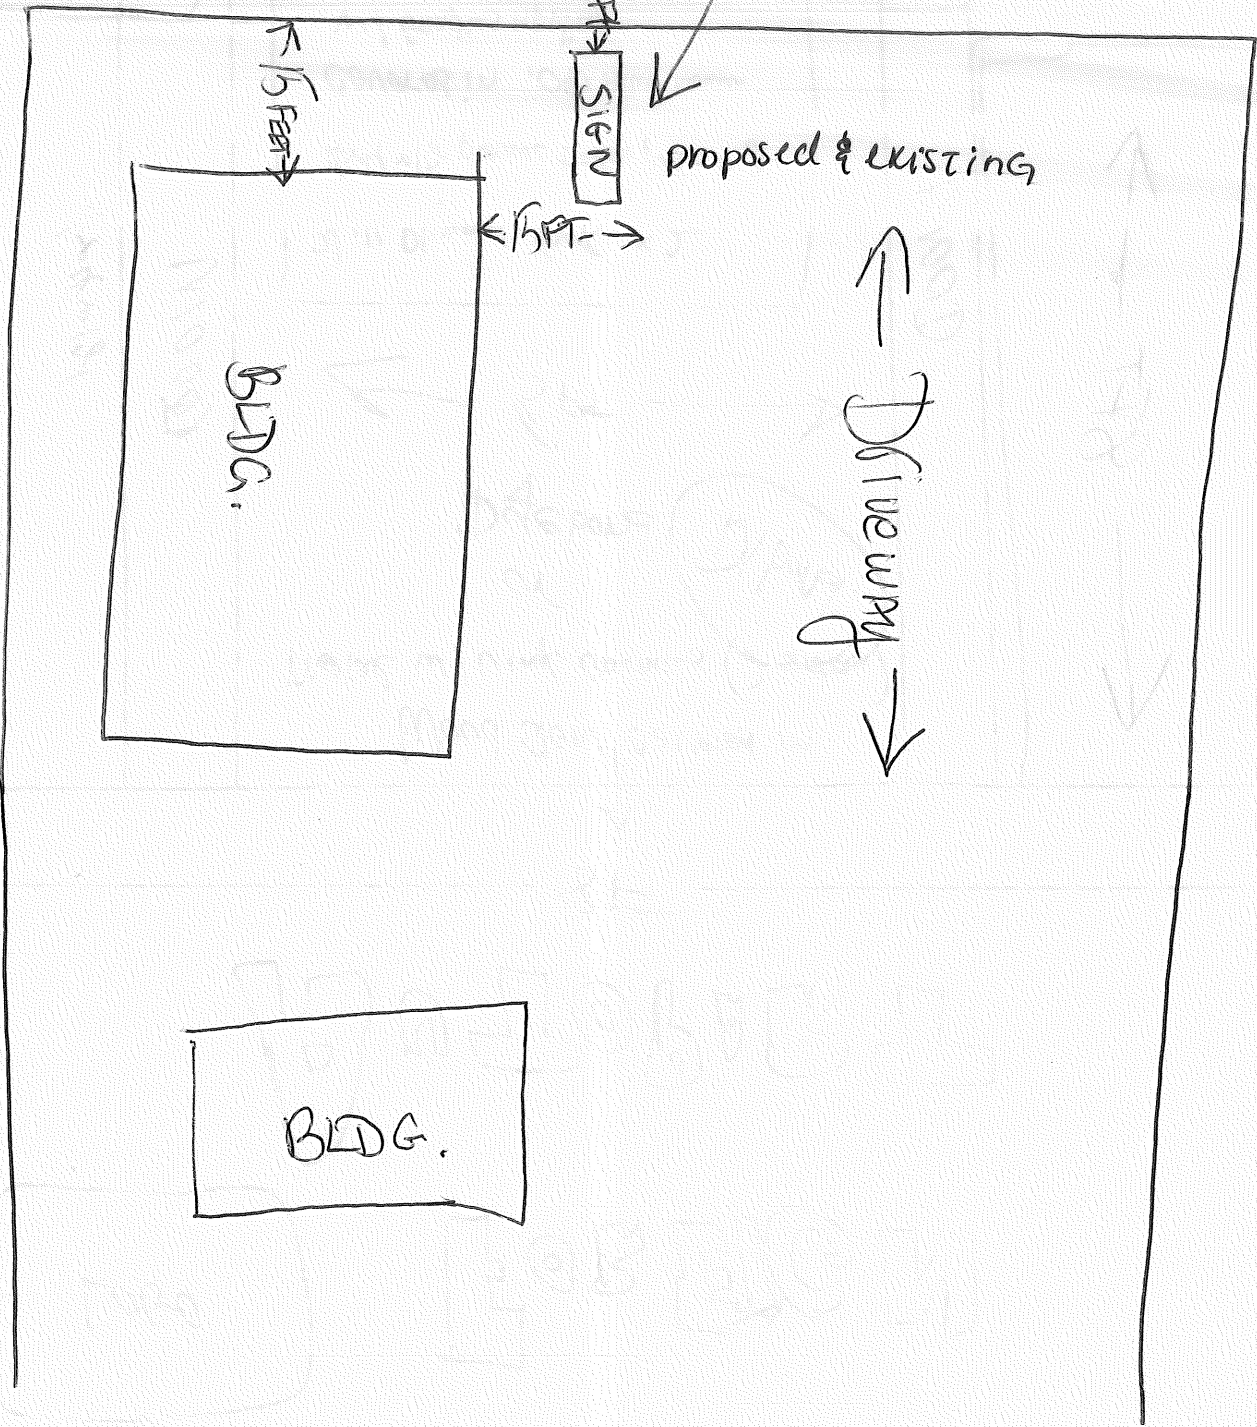 15 FEET
SIGN
proposed & existing
15 FT
BLDG.
Driveway
BLDG.